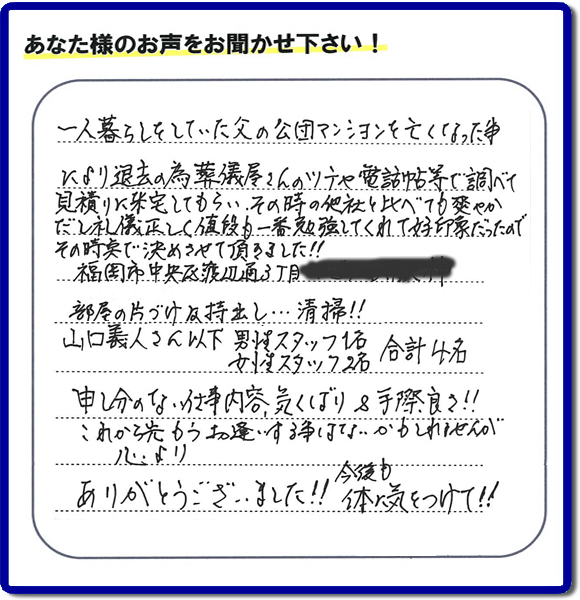 あなた様のお声をお聞かせ下さい！
一人暮らしをしていた父の公団マンションを亡くなった事
により退去の為葬儀屋さんのツテや電話帖等で調べて
見積りに来宅してもらい、その時の他社と比べても爽やか
だし礼儀正しく値段も一番勉強してくれて好印象だったので
その時点で決めさせて頂きました!!
福岡市中央区渡辺通3丁目
部屋の片づけ及持出し…清掃!!
山口義人さん以下 男性スタッフ1名
女性スタッフ2名 合計4名
申し分のない仕事内容、気くばり＆手際良さ!!
これから先もうお逢いする事はないかもしれませんが
心より
ありがとうございました!! 今後も
体に気をつけて!!